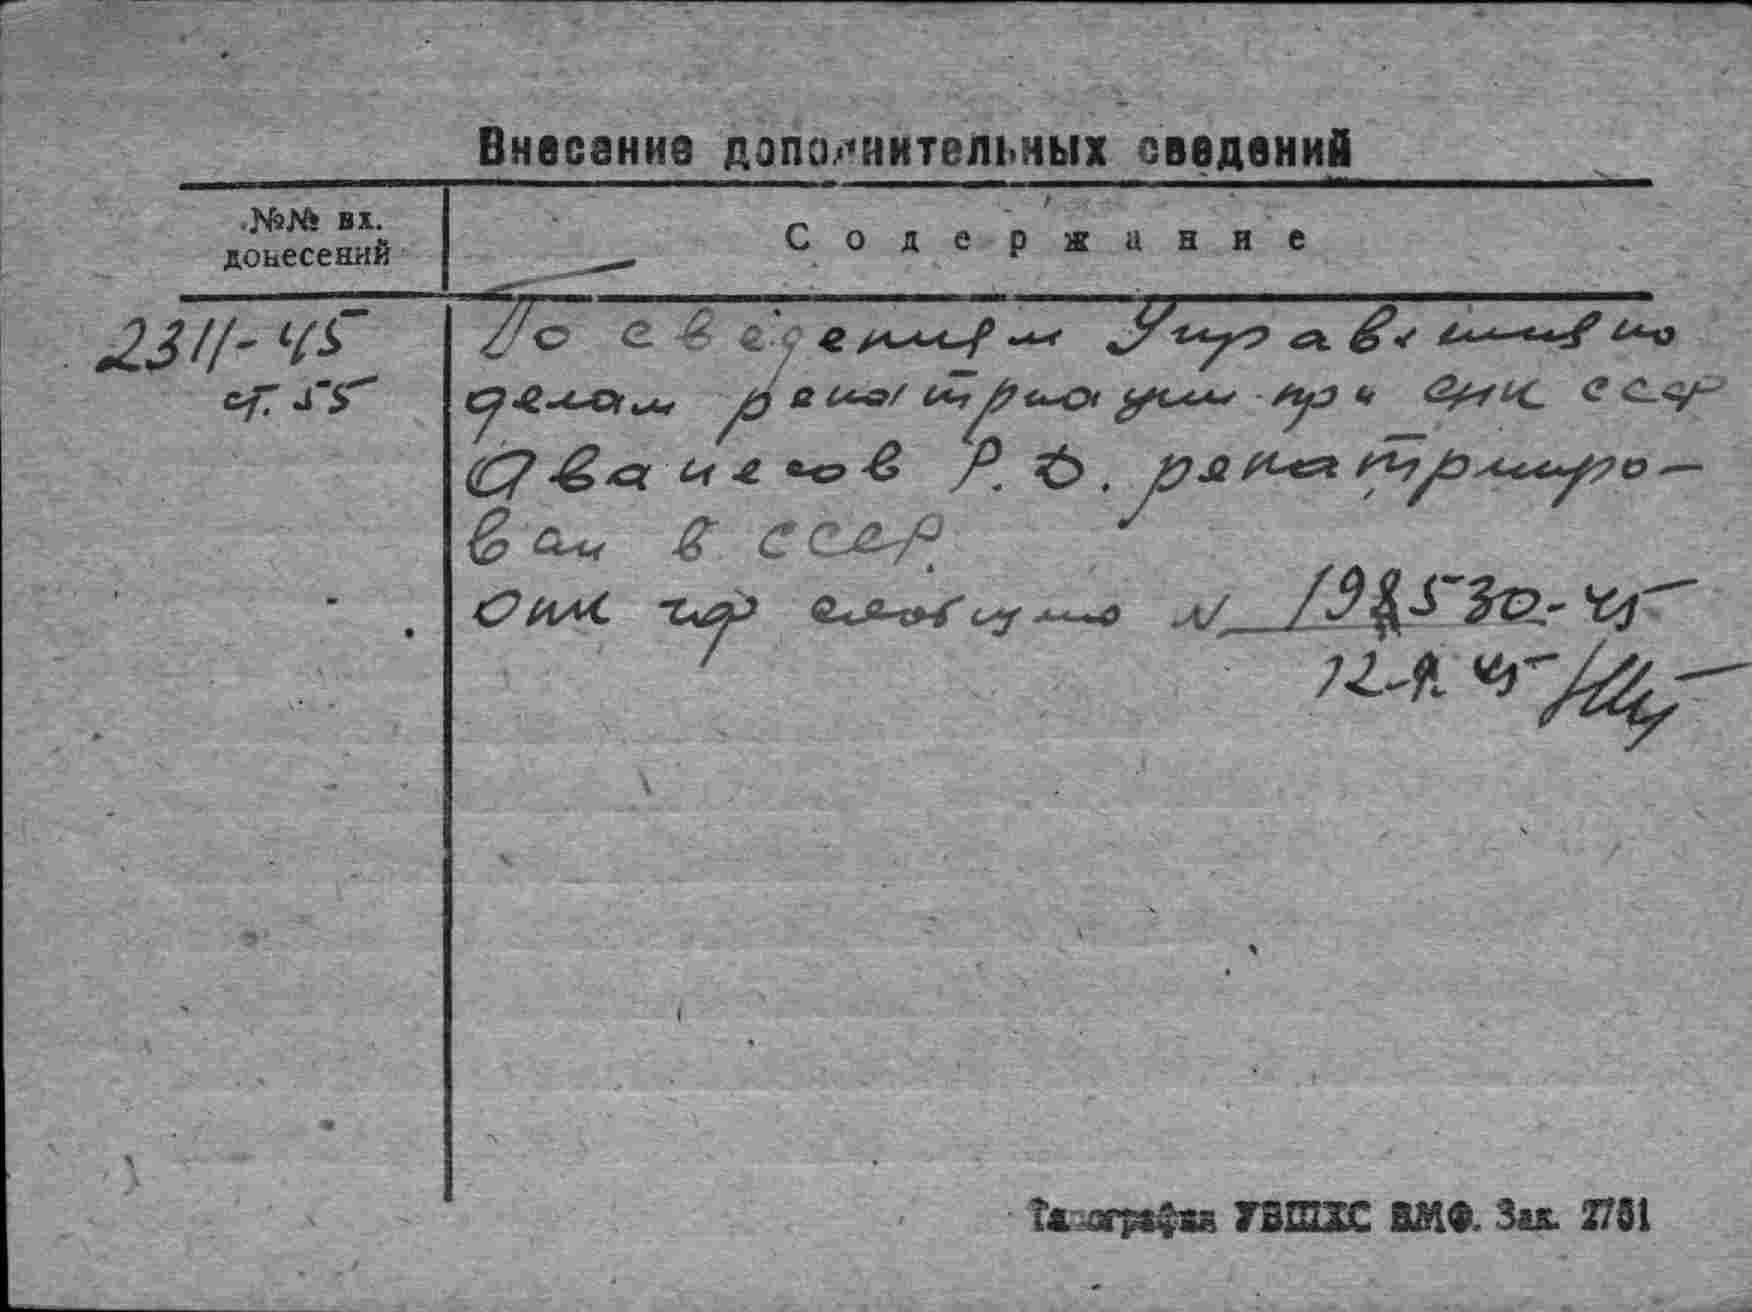 Внесение дополнительных сведений
№№ вх.
донесений
Содержание
2311-45
ст. 55
По сведениям Управления по
делам репатриации при СНК СССР
Аванесов Р. Д. репатрииро-
ван в СССР.
сообщено N 198530-45
12-9. 45
Типография УВШХС ВМФ. Зак. 2731